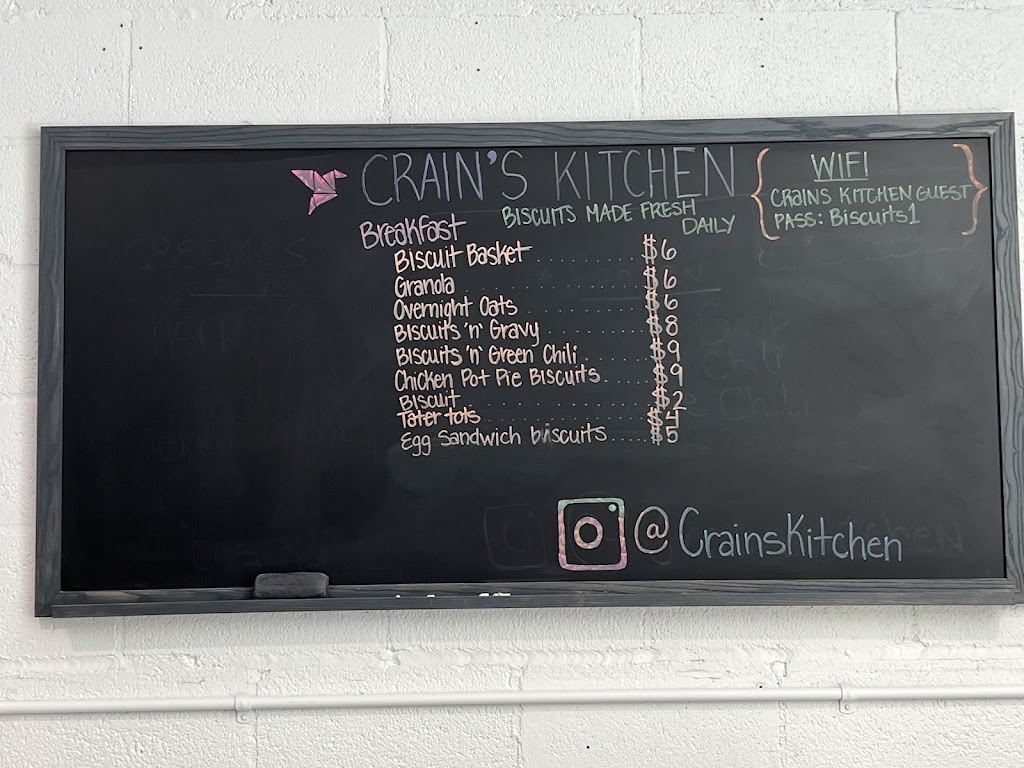 CRAIN'S KITCHEN
BISCUITS MADE FRESH
DAILY
WIFI
CRAINS KITCHEN GUEST
PASS: Biscuits1
Breakfast
Biscuit Basket.......... $6
Granola .......... $6
Overnight Oats .......... $6
Biscuits 'n' Gravy .......... $8
Biscuits 'n' Green Chili .......... $9
Chicken Pot Pie Biscuits..... $9
Biscuit .......... $2
Tater tots .......... $4
Egg Sandwich biscuits .... $5
@CrainsKitchen